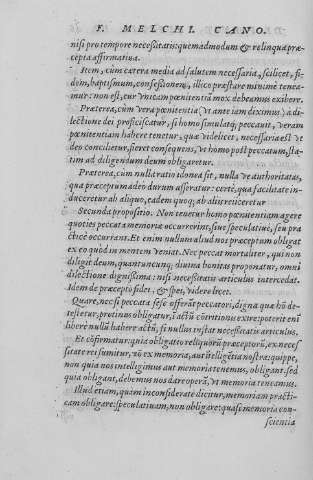 F. MELCHI. CANO.
nisi pro tempore necessitatis: quemadmodum & reliqua præ-
cepta affirmatiua.
Item, cùm cætera media ad salutem necessaria, scilicet, fi-
dem, baptismum, confessionemq́, illico præstare minimè tenea-
mur: non est, cur vnicam pœnitentiā mox debeamus exibere.
Præterea, cùm vera pœnitentia (vt ante iam diximus) à di-
lectione dei proficiscatur, si homo simulatq́; peccauit, veram
pœnitentiam habere tenetur, qua videlicet, necessaria est vt
deo concilietur, fieret consequens, vt homo post peccatum, sta-
tim ad diligendum deum obligaretur.
Præterea, cùm nulla ratio idonea sit, nulla vè authoritas,
qua præceptum adeo durum asseratur: certè, qua facilitate in-
duceretur ab aliquo, eadem quoq; ab aliis reiiceretur
Secunda propositio. Non tenetur homo pœnitentiam agere
quoties peccata memoriæ occurrerint, siue speculatiuè, seu pra
cticè occurrant. Etenim nullum aliud nos præceptum obligat
ex eo quòd in mentem veniat. Nec peccat mortaliter, qui non
diligit deum, quantuncunq; diuina bonitas proponatur, omni
dilectione dignissima: nisi necessitatis articulus intercedat.
Idem de præcepto fidei, & spei, videre licet.
Quare, nec si peccata sese offerāt peccatori, digna quæ hō de-
testetur, protinus obligatur, ī actū cōtritionis exire: poterit enī
liberè nullū habere actū, si nullus instat necessitatis articulus.
Et cōfirmatur: quia obligatio reliquorū præceptorū, ex neces
sitate rei sumitur, nō ex memoria, aut itelligētia nostra: quippe,
non quia nos intelligimus aut memoria tenemus, obligant. sed
quia obligant, debemus nos dare operā, vt memoria teneamus.
Illud etiam, quàm inconsideratè dicitur, memoriam practi-
cam obligare: speculatiuam, non obligare: quasi memoria con-
scientia